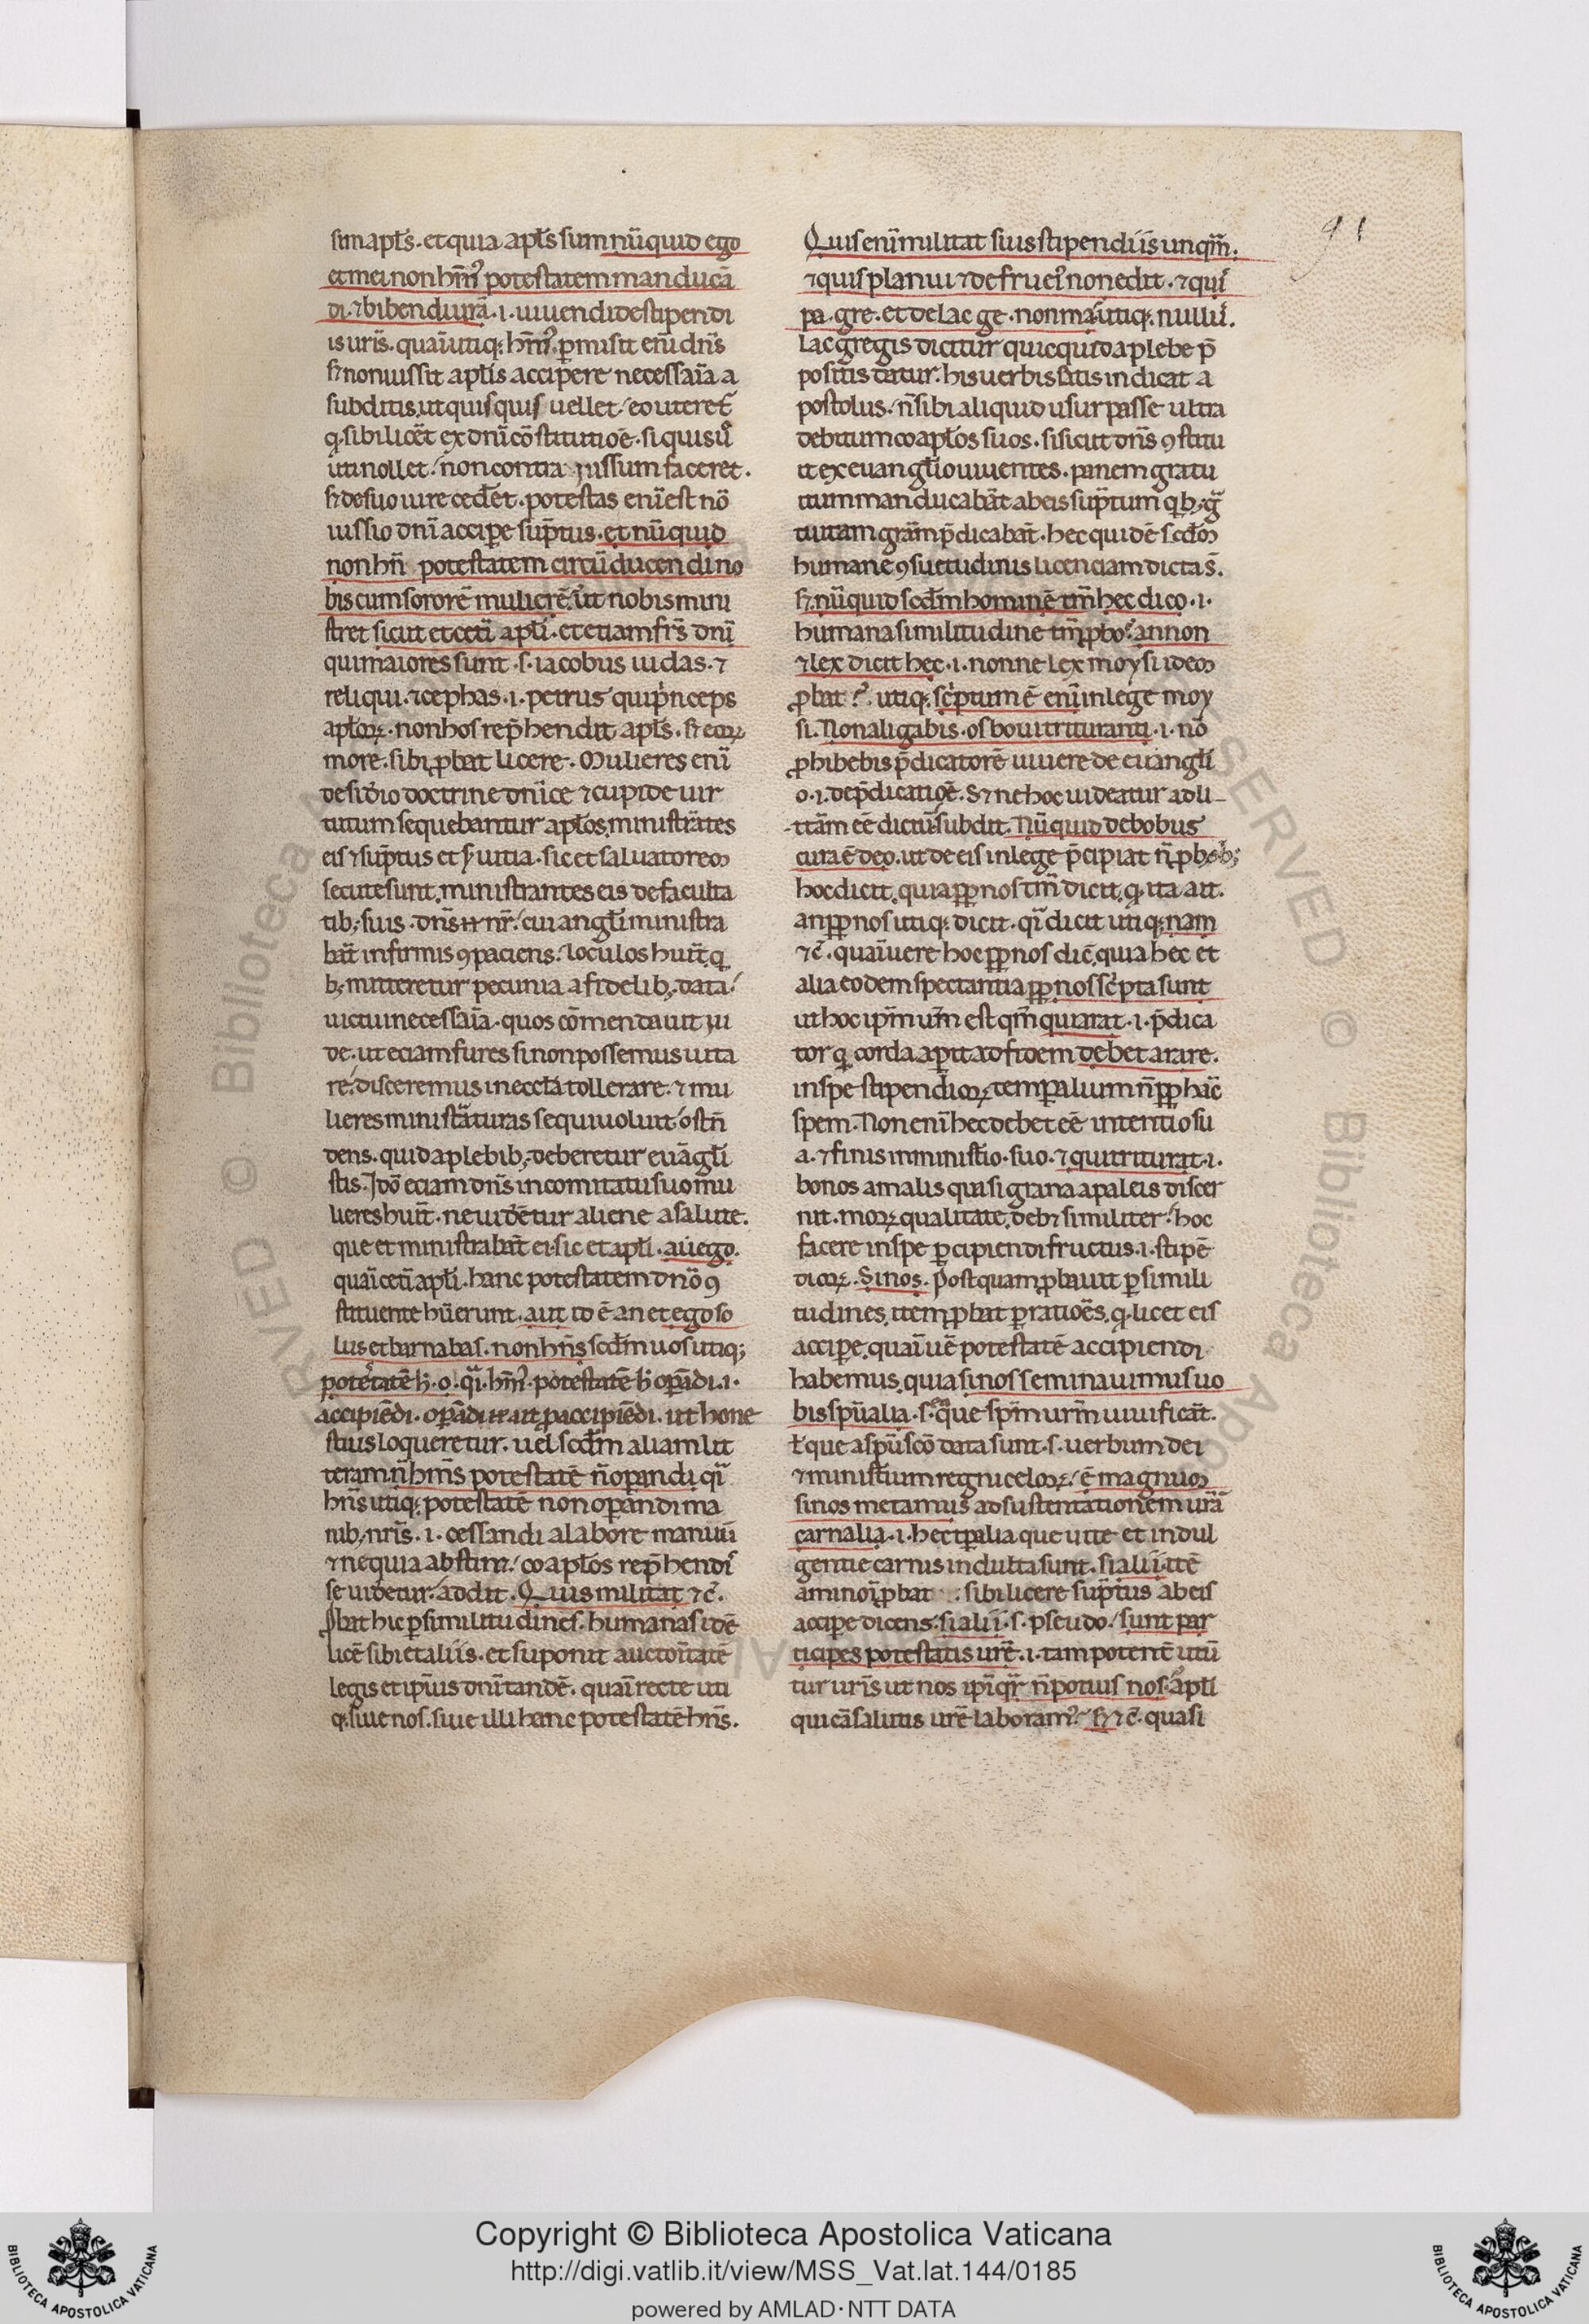 91
sim apl̃s. et quia apl̃s sum nũquid ego
et mei non hm̃s potestatem manducã
di. ⁊ bibendi urã .i. uiuendi de stipendi
is uris̃. quãi utiq; hm̃s. pmisit eni᷑ dñs
s; non iussit aplĩs accipere necessaĩa a
subditis, ut quisquis uellet eo uteret᷑
q̨ sibi licet̃ ex dñi cõstitutiõe. si quis u᷑
uti nollet non contra iussum faceret.
s; de suo iure cedet̃. potestas eni᷑ est nõ
iussio dñi accipe sup̃tus. et nũquid
non hñ potestatem circũducendi no
bis cum sororẽ mulierẽ, ut nobis mini
stret sicut et cetĩ apl̃i. et etiam frs̃ dñi
qui maiores sunt .s. iacobus iudas. ⁊
reliqui. ⁊ cephas .i. petrus qui p̃nceps
apl̃oꝝ. non hos rep̃hendit apl̃s. s; eoꝝ
more. sibi ꝓbat licere. Mulieres eni᷑
desidĩo doctrine dñice ⁊ cupide uir
tutum sequebantur apl̃os, ministrãtes
eis ⁊ sup̃tus et s̃uitia. sic et saluatorem
secute sunt, ministrantes eis de faculta
tib; suis. dñs nr̃. cui angl̃i ministra
bãt infirmis ꝯpaciens, loculos huit̃, q̨
b; mitteretur pecunia a fidelib; data
uictui necessaĩa. quos cõmendauit iu
de. ut eciam fures si non possemus uita
re, disceremus in eccl̃a tollerare. ⁊ mu
lieres ministãturas se qui uoluit ostñ
dens. quid a plebib; deberetur euãgl̃i
stis. Idõ eciam dñs in comitatu suo mu
lieres huit̃. ne uidẽtur aliene a salute.
que et ministrabãt ei. sic et apl̃i. aũ ego.
quãi cetĩ apl̃i. hanc potestatem dnõ ꝯ
stituente hũerunt. aut id ẽ an et ego so
lus et barnabas. non hñs scdm̃ uos utiq;
potẽtatẽ h̃. o. q̃i. hm̃s. potestatẽ h̃ opãdi .i.
accipiẽdi. opãdi ait ꝓ accipiẽdi. ut hone
stius loqueretur. uel scdm̃ aliam lit
teram ñ hm̃s potestatẽ ñ opandi q̃i
hñs utiq; potestatẽ non opandi ma
nib; nris̃ .i. cessandi a labore manuũ
⁊ ne quia abstin᷑. coapl̃os rep̃hendi
se uidetur. addit. Quis militat ⁊c̃.
Ꝓbat hic p similitudines. humanas idẽ
licẽ sibi et aliis. et suponit auctoĩtatẽ
legis et ipĩus dñi tandẽ. quãi recte uti
q̨ siue nos. siue illi hanc potestatẽ hñs.
Quis eni᷑ militat suis stipendiis unqm̃.
⁊ quis plan uin ⁊ de fruct᷑ non edit. ⁊ qui᷑
pa. gre. et de lac ge. non mãutiq; nullus᷑.
Lac gregis dicitur quicquid a plebe p̃
positis datur. his uerbis satis indicat a
postolus, ñ sibi aliquid usurpasse ultra
debitum coapl̃os suos. si sicut dñs ꝯstitu
it ex euanglĩo uiuentes. panem gratu
itum manducabãt ab eis sup̃tum q̨b; g̃
tuitam gram̃ p̃dicabãt. hec quidẽ scdm̃
humanẽ ꝯsuetudinis licenciam dicta s̃.
s; nũquid scdm̃ hominẽ tm̃ hec dico .i.
humana similitudine tm̃ ꝓbo᷑ an non
⁊ lex dicit hec .i. nonne lex moysi idem
ꝓbat᷑. utiq; sc̃ptum ẽ eni᷑ in lege moy
si. Non aligabis. os boui trituranti .i. nõ
ꝓhibebis p̃dicatorẽ uiuere de euangli᷑
o .i. de p̃dicatiõe. S; ne hoc uideatur ad li
ttãm ee᷑ dictũ subdit. Nũquid de bobus
cura ẽ deo. ut de eis in lege p̃cipiat ñ pb;
hoc dicit, quia ꝓp nos tm̃ dicit, q̨ ita ait.
an ꝓp nos utiq; dicit. q̃i dicit utiq; nam
⁊c̃. quãi uere hoc ꝓp nos dic̃, quia hec et
alia eodem spectantia ꝓp nos sc̃pta sunt
ut hoc ipm̃ um̃ est qm̃ qui arat .i. p̃dica
tor q̨ corda apit ad fidem debet arare.
in spe stipendioꝝ tempalium ñ ꝓp hãc
spem. Non eni᷑ hec debet ee᷑ intentio su
a. ⁊ finis in minist̃io suo. ⁊ qui triturat .i.
bonos a malis quasi grana a paleis discer
nit. moꝝ qualitate, deb; similiter hoc
facere in spe p̃cipiendi fructus .i. stipẽ
dioꝝ. Si nos. Postquam ꝓbauit p simili
tudines, item ꝓbat p ratiões, q̨ licet eis
accipe, quãi uẽ potestatẽ accipiendi
habemus, quia si nos seminauimus uo
bis spũalia .s. que spm̃ urm̃ uiuificãt.
ł que a spũ scõ data sunt .s. uerbum dei
⁊ minist̃ium regni celoꝝ, ẽ magnum
si nos metamus ad sustentationem urã
carnalia .i. hec tp̃alia que uite et indul
gentie carnis indulta sunt. si alii itẽ
a minoi᷑ ꝓbat sibi licere sup̃tus ab eis
accipe dicens si alii .s. pseudo, sunt par
ticipes potestatis urẽ .i. tam potent᷑ utũ
tur uris̃ ut nos ipi᷑ q̃r ñ potius nos apl̃i
qui cã salutis urẽ laboram᷑. S; ⁊c̃. quasi
Copyright © Biblioteca Apostolica Vaticana
http://digi.vatlib.it/view/MSS_Vat.lat.144/0185
powered by AMLAD·NTT DATA